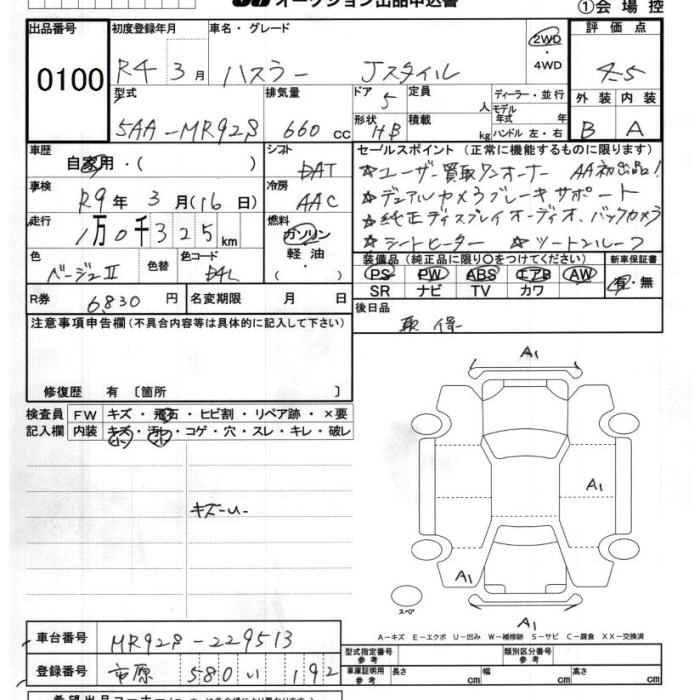 オークション出品申込書
①会場控
出品番号
0100
初度登録年月
R4 3月
車名・グレード
ハスラー Jスタイル
2WD
・4WD
評価点
4.5
型式
5AA-MR92S
排気量
660 cc
ドア 5
形状 HB
定員 人
積載 kg
ディーラー・並行
モデル年式 年式
ハンドル 左・右
外装 内装
B A
車歴
自家用・( )
シフト
DAT
セールスポイント(正常に機能するものに限ります)
☆ユーザー買取ワンオーナー AA初出品!
☆デュアルカメラブレーキサポート
☆純正ディスプレイオーディオ、バックカメラ
☆シートヒーター ☆ツートンルーフ
車検
R9年 3月(16日)
冷房
AAC
走行
1万0千325km
燃料
ガソリン
軽油
・( )
色
ベージュII
色替
色コード
装備品(純正品に限り○をつけてください)
PS PW ABS エアB AW
SR ナビ TV カワ
新車保証書
有・無
R券 6,830円
名変期限 月 日
後日品
取保
注意事項申告欄(不具合内容等は具体的に記入して下さい)
修復歴 有〔箇所 〕
検査員
記入欄
FW キズ・飛石・ヒビ割・リペア跡・×要
内装 キズ・汚れ・コゲ・穴・スレ・キレ・破レ
A1
A1
A1
A1
スペア
A-キズ E-エクボ U-凹み W-補修跡 S-サビ C-腐食 XX-交換済
車台番号 MR92S-229513
登録番号 市原 580 い 192
型式指定番号 参考
類別区分番号 参考
車庫証明用 参考 長さ cm 幅 cm 高さ cm